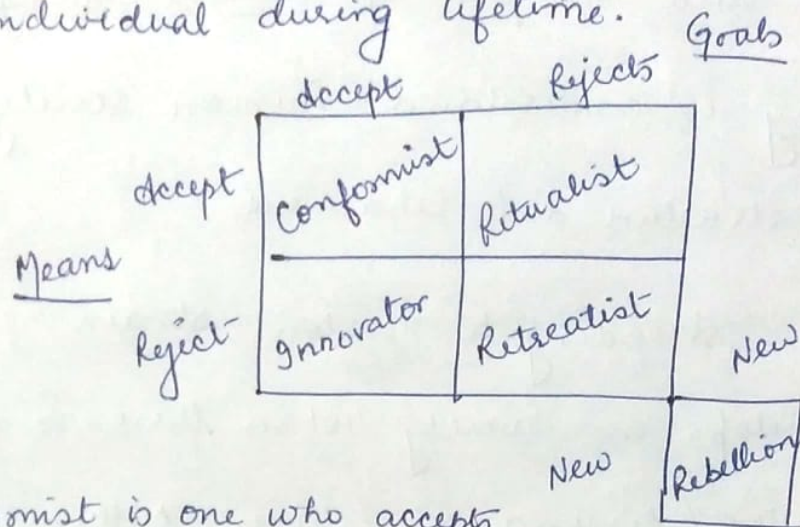 ndividual during lifetime.
Goals
Accept Rejects
Accept Conformist Ritualist
Means
Reject Innovator Retreatist
New
New Rebellion
mist is one who accepts